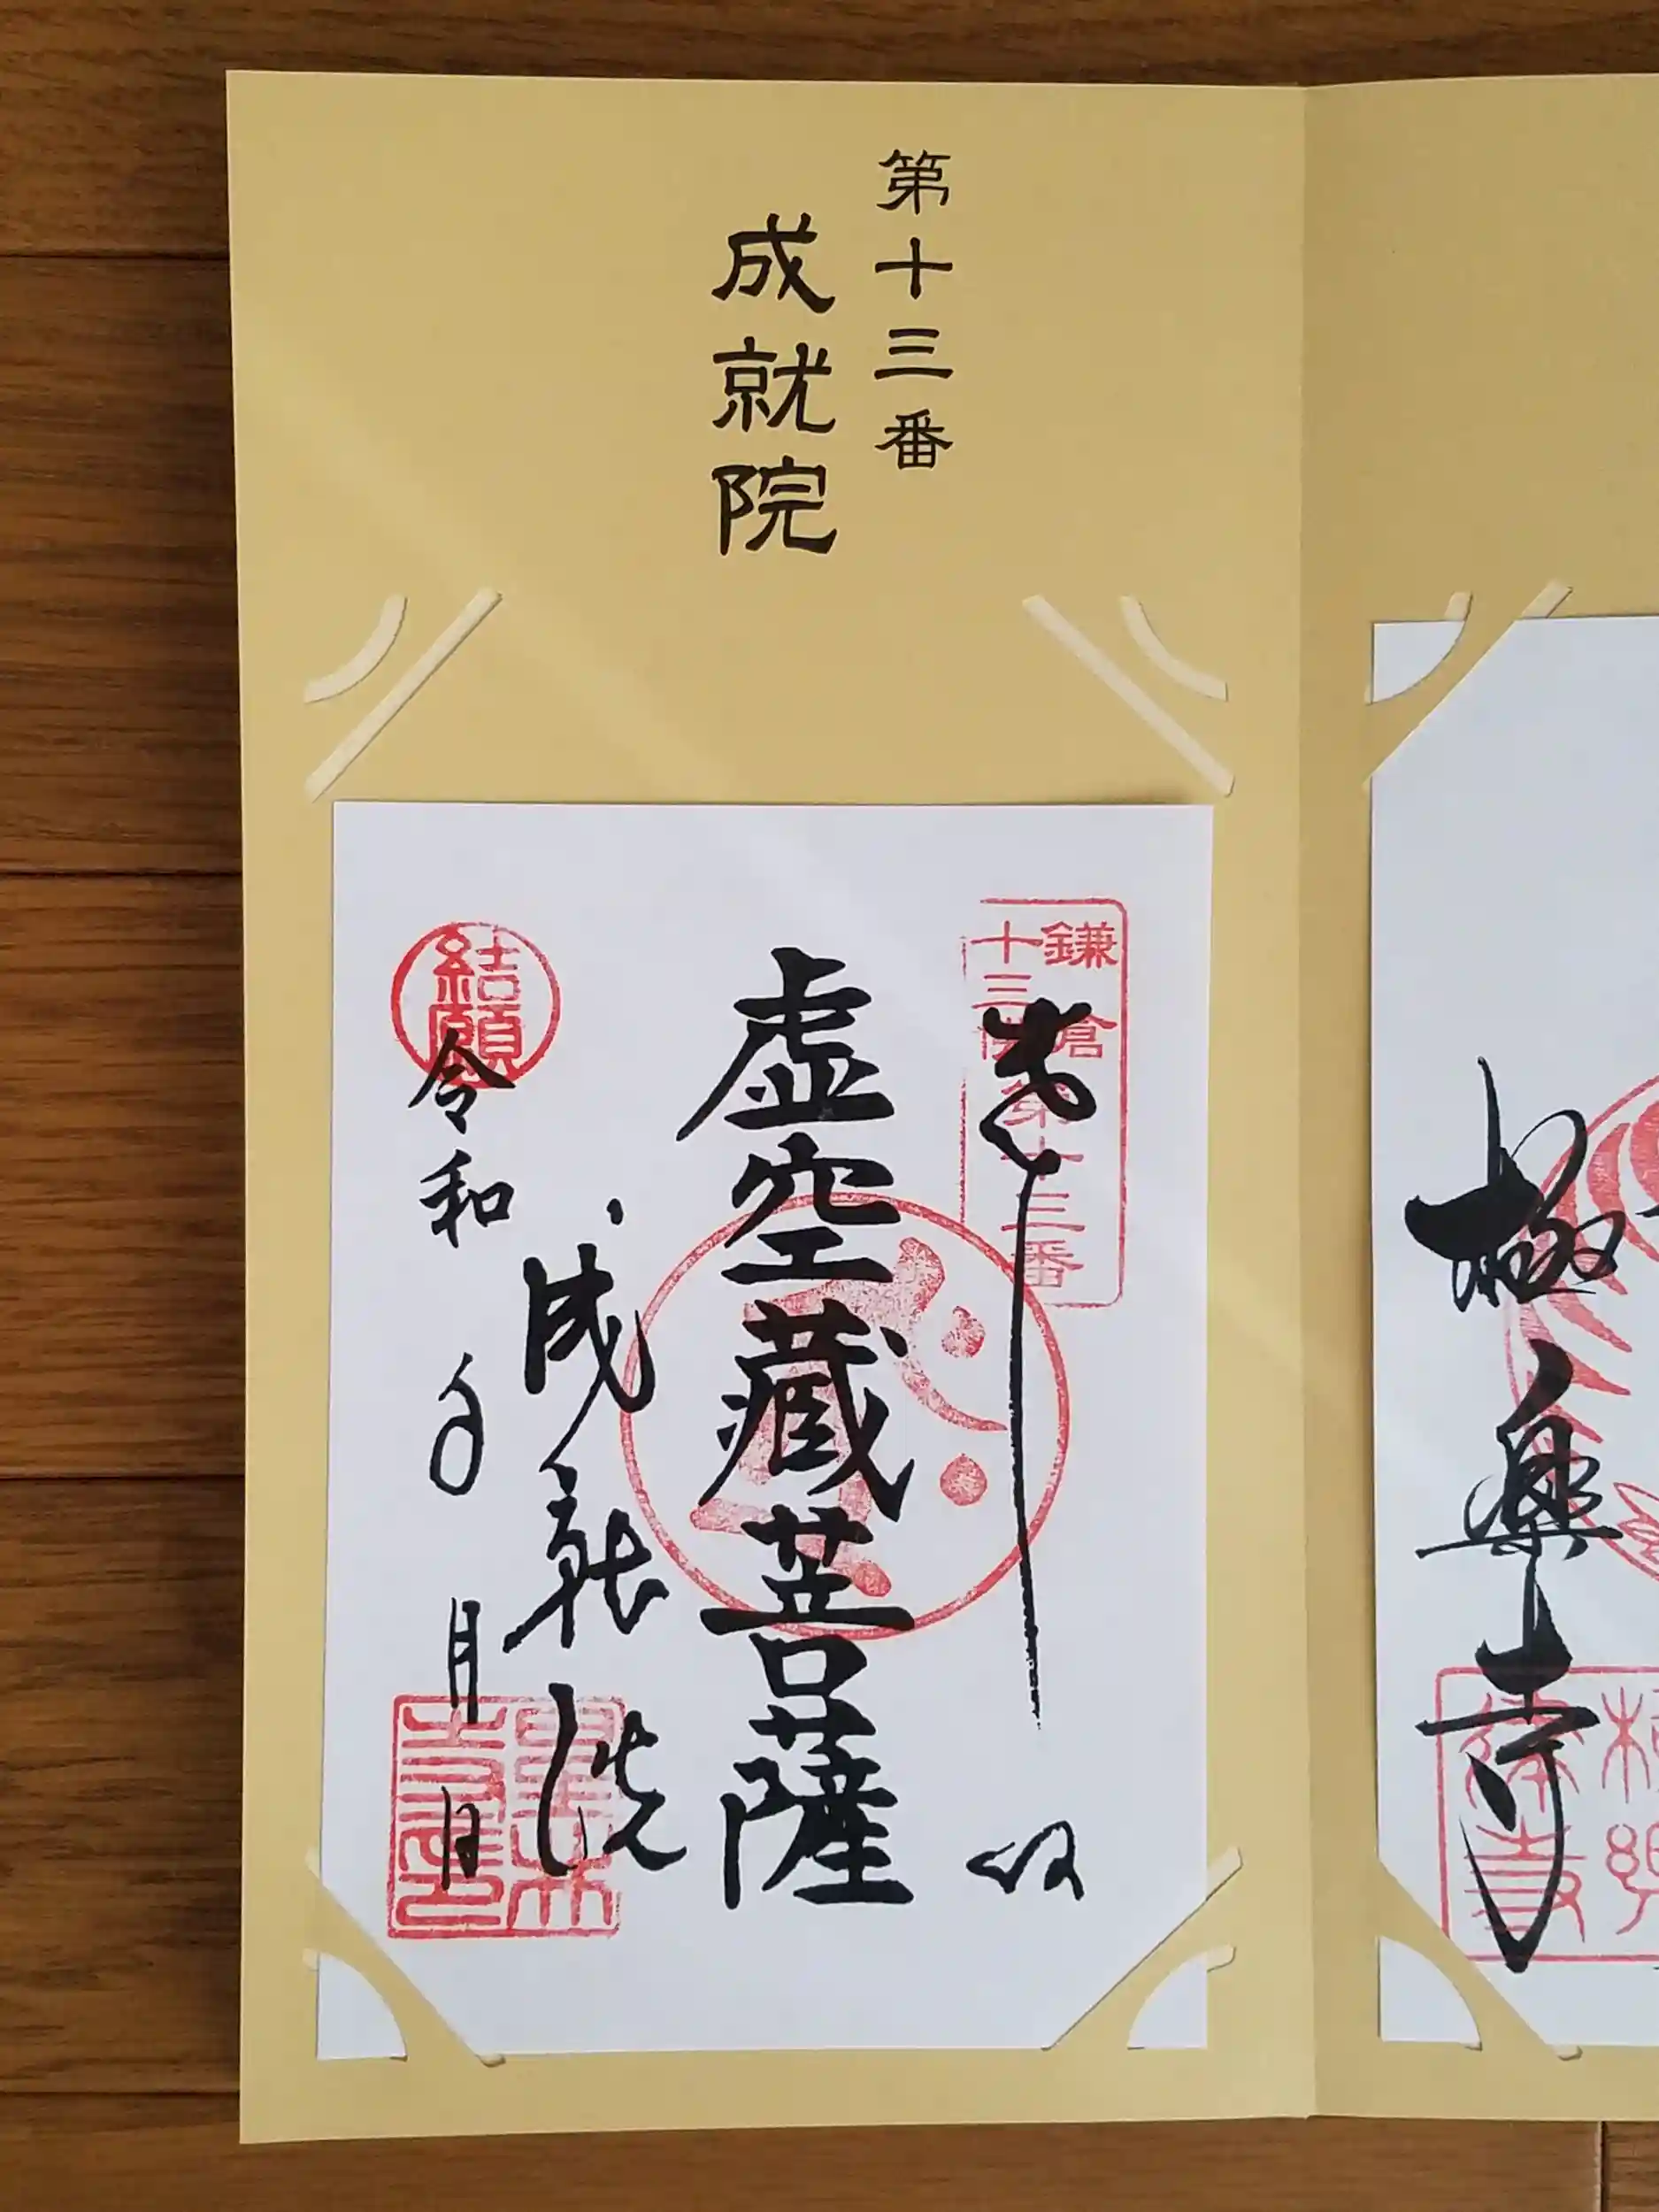 第十三番
成就院
鎌倉
十三佛
第十三番
奉拝
虚空蔵菩薩
成就院
結願
令和 年 月 日
極樂寺